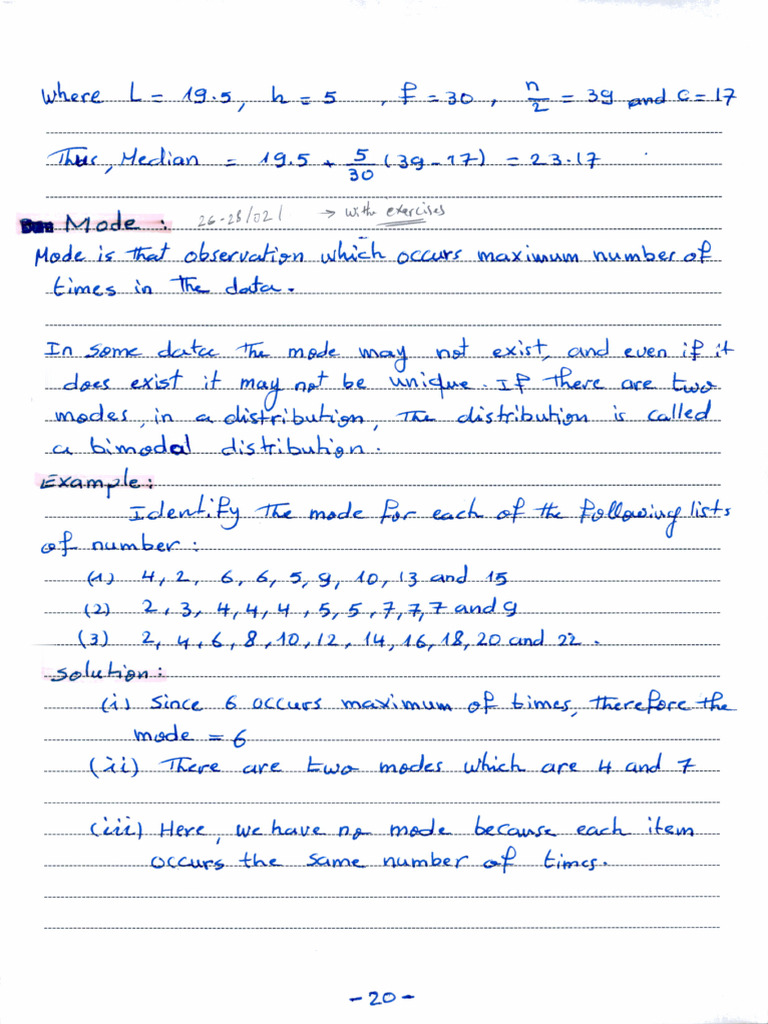 Where L = 19.5, h = 5 , f = 30 , n/2 = 39 and c = 17
Thus, Median = 19.5 + 5/30 (39 - 17) = 23.17
Mode : 26-28/02/ → with exercises
Mode is that observation which occurs maximum number of
times in the data.
In some data the mode may not exist, and even if it
does exist it may not be unique. If there are two
modes, in a distribution, the distribution is called
a bimodal distribution.
Example:
Identify the mode for each of the following lists
of number :
(1) 4, 2, 6, 6, 5, 9, 10, 13 and 15
(2) 2, 3, 4, 4, 4, 5, 5, 7, 7, 7 and 9
(3) 2, 4, 6, 8, 10, 12, 14, 16, 18, 20 and 22.
Solution:
(i) Since 6 occurs maximum of times, therefore the
mode = 6
(ii) There are two modes which are 4 and 7
(iii) Here, we have no mode because each item
occurs the same number of times.
- 20 -